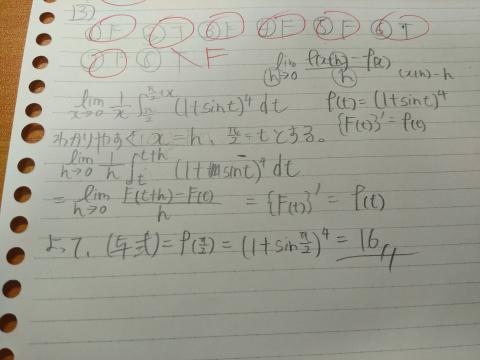 13)
① F ② T ③ F ④ F ⑤ F ⑥ T
⑦ F ⑧ T F
lim h→0 f(x+h)-f(x) / h
(x+h)-h
lim x→0 1/x ∫_{π/2}^{π/2+x} (1+sint)^4 dt
f(t)=(1+sint)^4
{F(t)}'=f(t)
わかりやすく、x=h、π/2=tとする。
lim h→0 1/h ∫_t^{t+h} (1+sint)^4 dt
= lim h→0 F(t+h)-F(t) / h = {F(t)}' = f(t)
よって、(与式)=f(π/2)=(1+sin π/2)^4=16